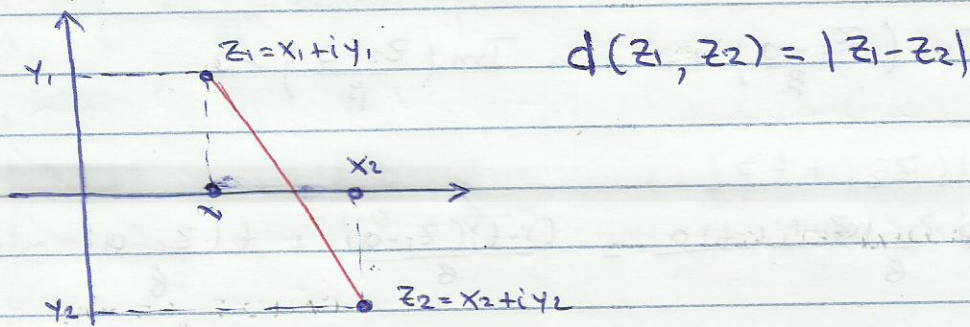 Z1 = x1 + iy1
d(Z1, Z2) = |Z1 - Z2|
y1
x2
x
y2
Z2 = x2 + iy2